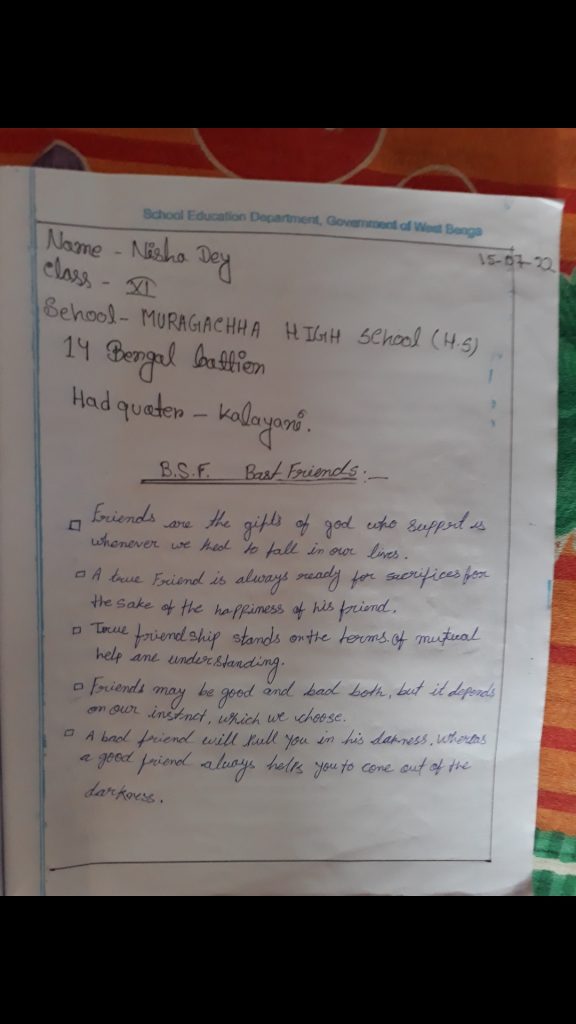 School Education Department, Government of West Benga
15-07-22
Name - Nisha Dey
Class - XI
School - MURAGACHHA HIGH School (H.S)
14 Bengal battion
Had quater - Kalayani.
B.S.F. Bast Friends :-
Friends are the gifts of god who support is
whenever we to fall in our lives.
A true Friend is always ready for sacrifices for
the sake of the happiness of his friend.
True friendship stands on the terms of mutual
help ane understanding.
Friends may be good and bad both, but it depends
on our instinct, which we choose.
A bad friend will Pull you in his darness, wheras
a good friend always helps you to cone out of the
darkness.